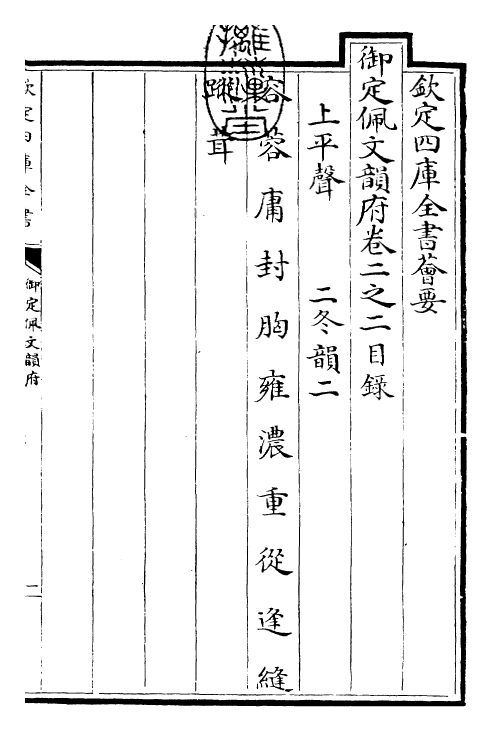 欽定四庫全書薈要
御定佩文韻府卷二之二目錄
上平聲　二冬韻二
容蓉庸封胸雍濃重從逢縫
蹤茸
欽定四庫全書
御定佩文韻府
一